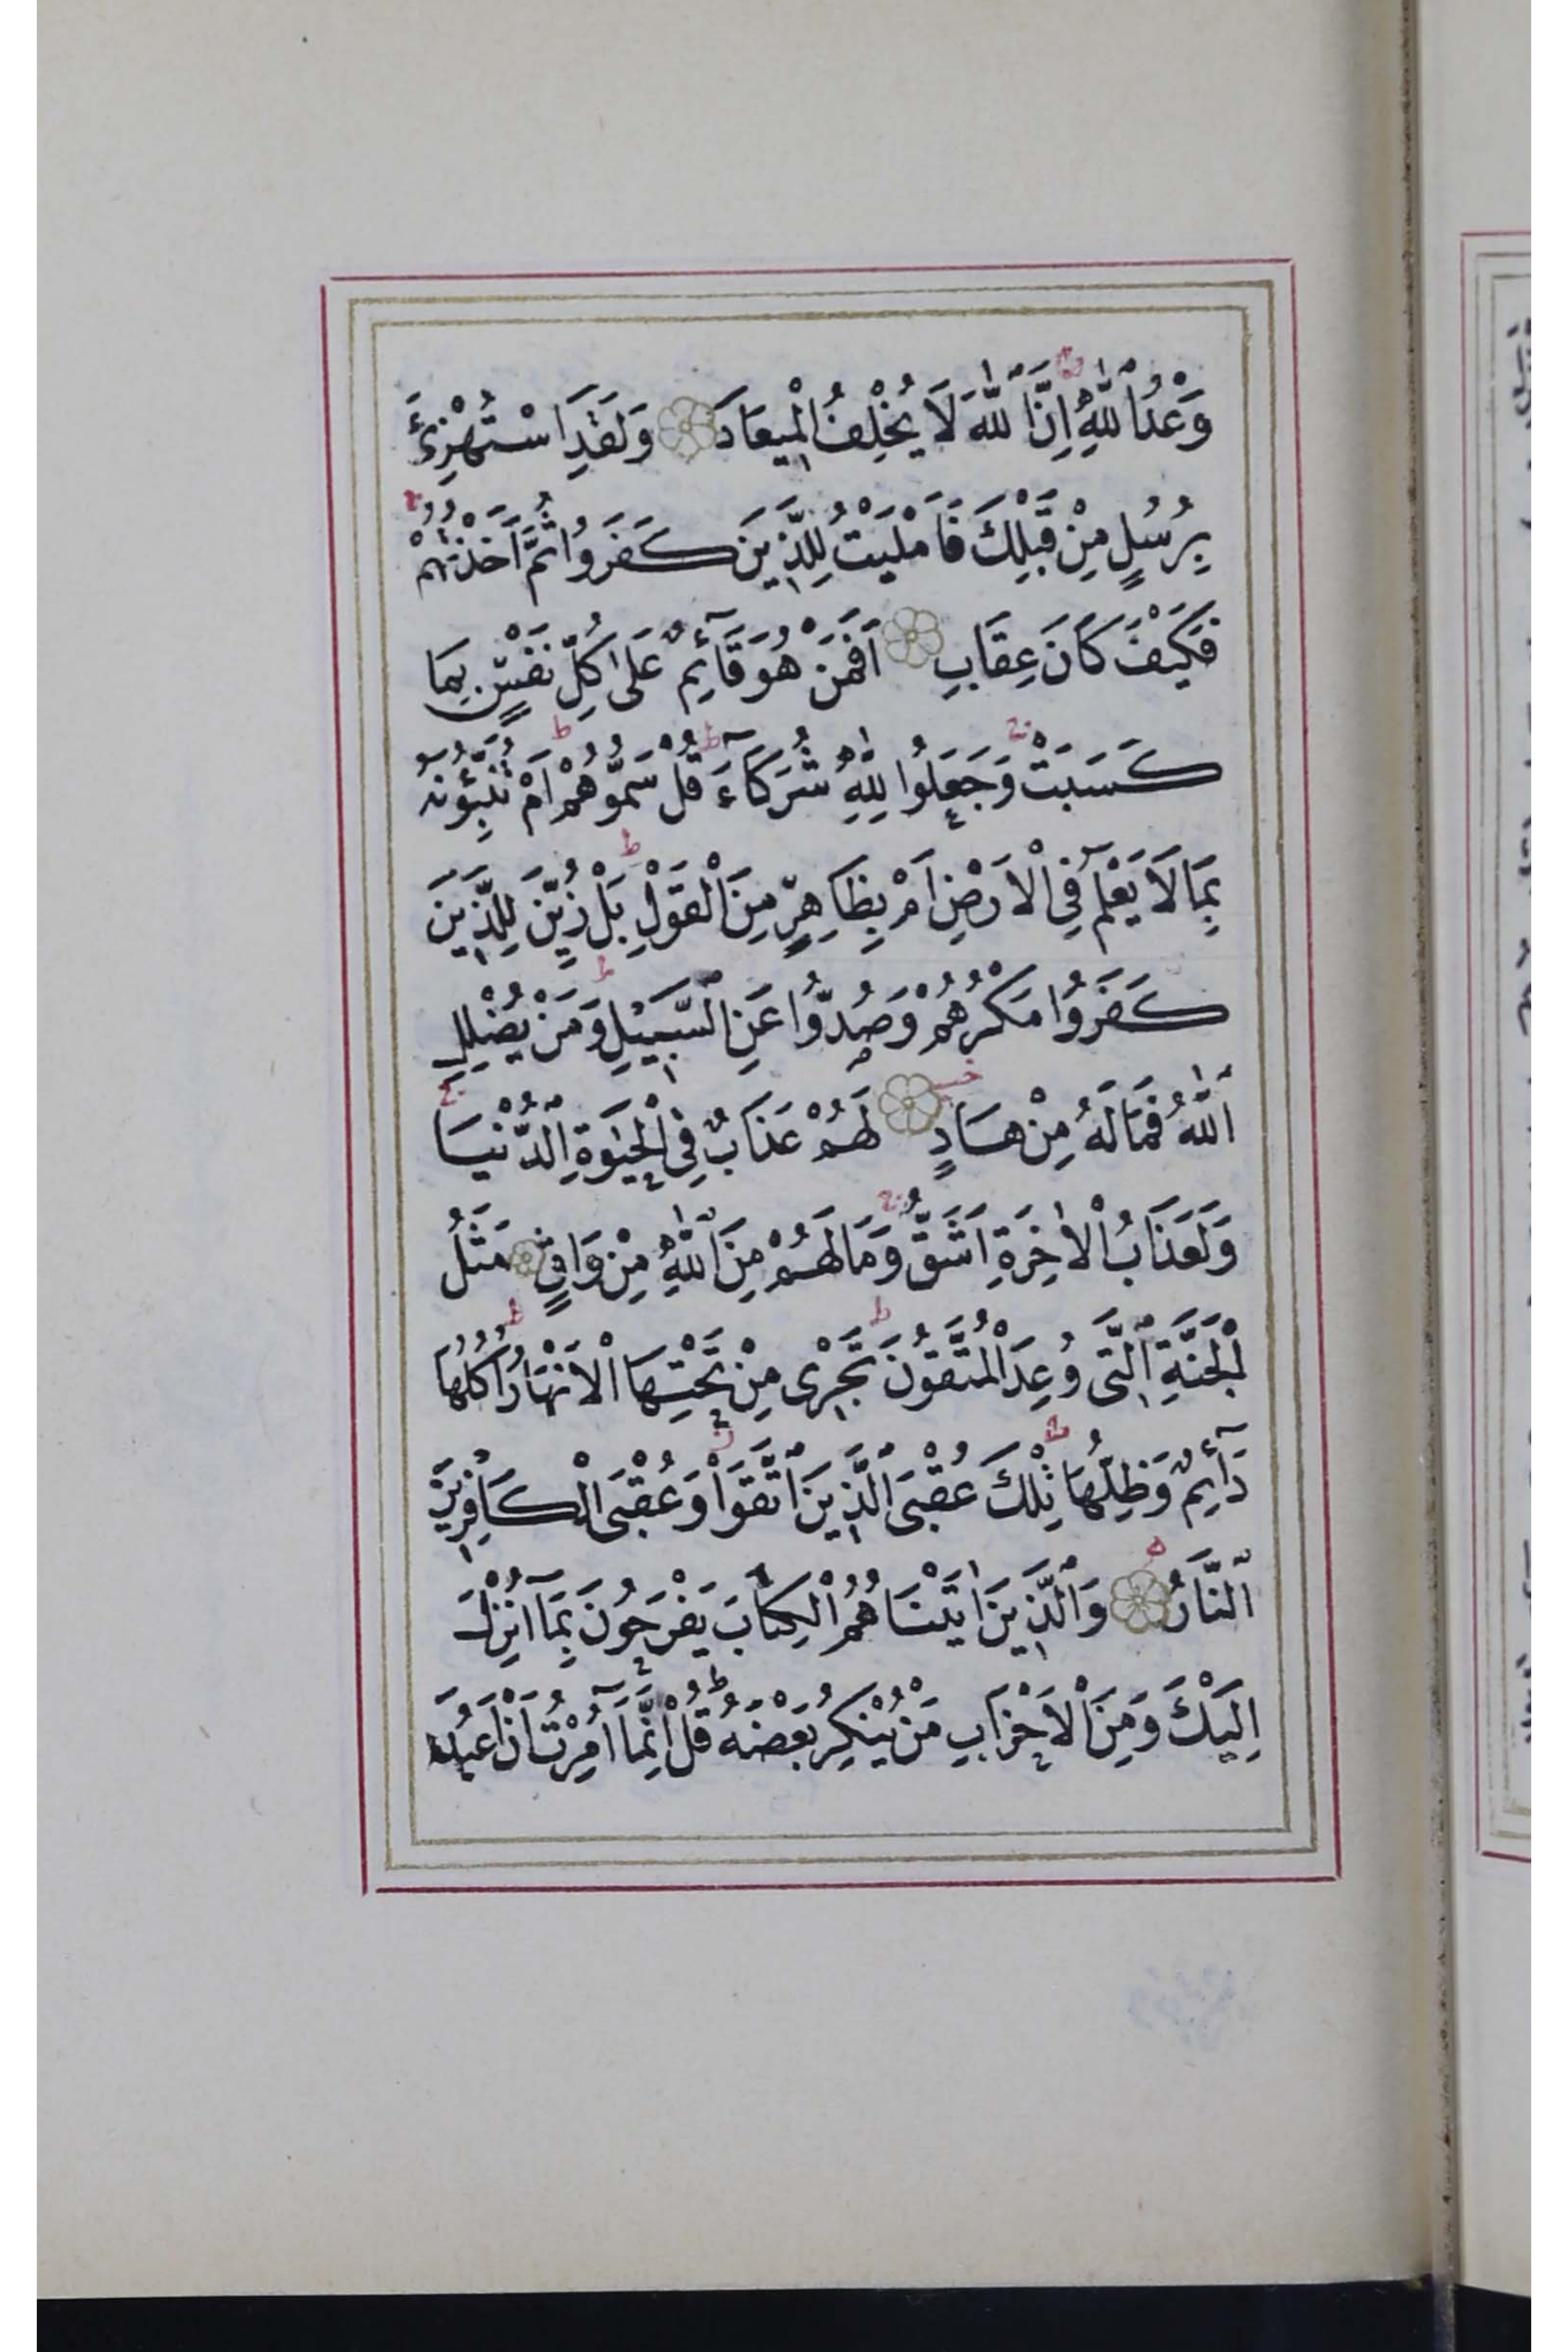 وَعْدُ اللّٰهِ اِنَّ اللّٰهَ لَا يُخْلِفُ الْمِيعَادَ وَلَقَدِ اسْتُهْزِئَ
بِرُسُلٍ مِنْ قَبْلِكَ فَاَمْلَيْتُ لِلَّذِينَ كَفَرُوا ثُمَّ اَخَذْتُهُمْ
فَكَيْفَ كَانَ عِقَابِ اَفَمَنْ هُوَ قَآئِمٌ عَلٰى كُلِّ نَفْسٍ بِمَا
كَسَبَتْ وَجَعَلُوا لِلّٰهِ شُرَكَآءَ قُلْ سَمُّوهُمْ اَمْ تُنَبِّؤُنَهُ
بِمَا لَا يَعْلَمُ فِى الْاَرْضِ اَمْ بِظَاهِرٍ مِنَ الْقَوْلِ بَلْ زُيِّنَ لِلَّذِينَ
كَفَرُوا مَكْرُهُمْ وَصُدُّوا عَنِ السَّبِيلِ وَمَنْ يُضْلِلِ
اللّٰهُ فَمَا لَهُ مِنْ هَادٍ لَهُمْ عَذَابٌ فِى الْحَيٰوةِ الدُّنْيَا
وَلَعَذَابُ الْاٰخِرَةِ اَشَقُّ وَمَا لَهُمْ مِنَ اللّٰهِ مِنْ وَاقٍ مَثَلُ
الْجَنَّةِ الَّتِى وُعِدَ الْمُتَّقُونَ تَجْرِى مِنْ تَحْتِهَا الْاَنْهَارُ اُكُلُهَا
دَآئِمٌ وَظِلُّهَا تِلْكَ عُقْبَى الَّذِينَ اتَّقَوْا وَعُقْبَى الْكَافِرِينَ
النَّارُ وَالَّذِينَ اٰتَيْنَاهُمُ الْكِتَابَ يَفْرَحُونَ بِمَآ اُنْزِلَ
اِلَيْكَ وَمِنَ الْاَحْزَابِ مَنْ يُنْكِرُ بَعْضَهُ قُلْ اِنَّمَآ اُمِرْتُ اَنْ اَعْبُدَ